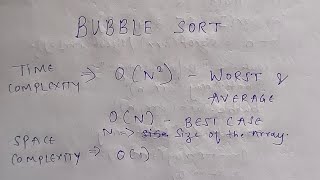 BUBBLE SORT
TIME COMPLEXITY → O(N²) - WORST & AVERAGE
O(N) - BEST CASE
N → Size of the Array.
SPACE COMPLEXITY → O(1)